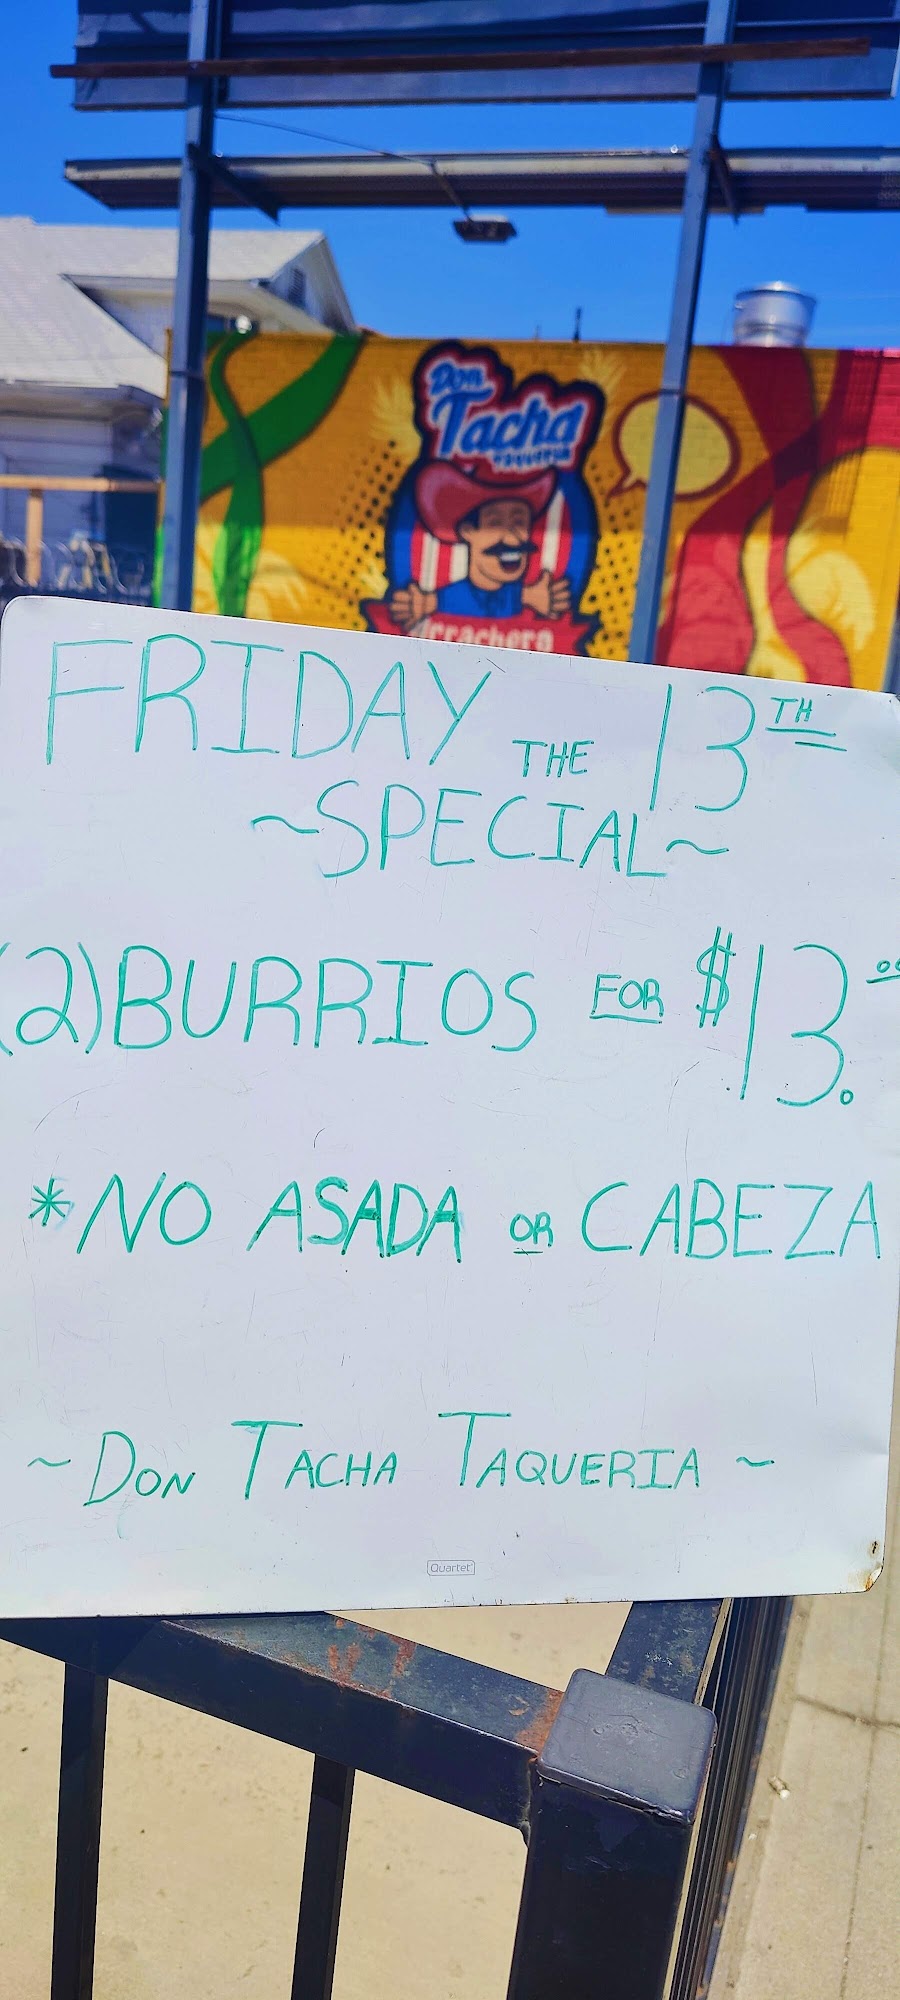 Don
Tacha
TAQUERIA
Arrachero
FRIDAY THE 13TH
~SPECIAL~
(2) BURRIOS FOR $13.00
*NO ASADA OR CABEZA
~ DON TACHA TAQUERIA ~
Quartet